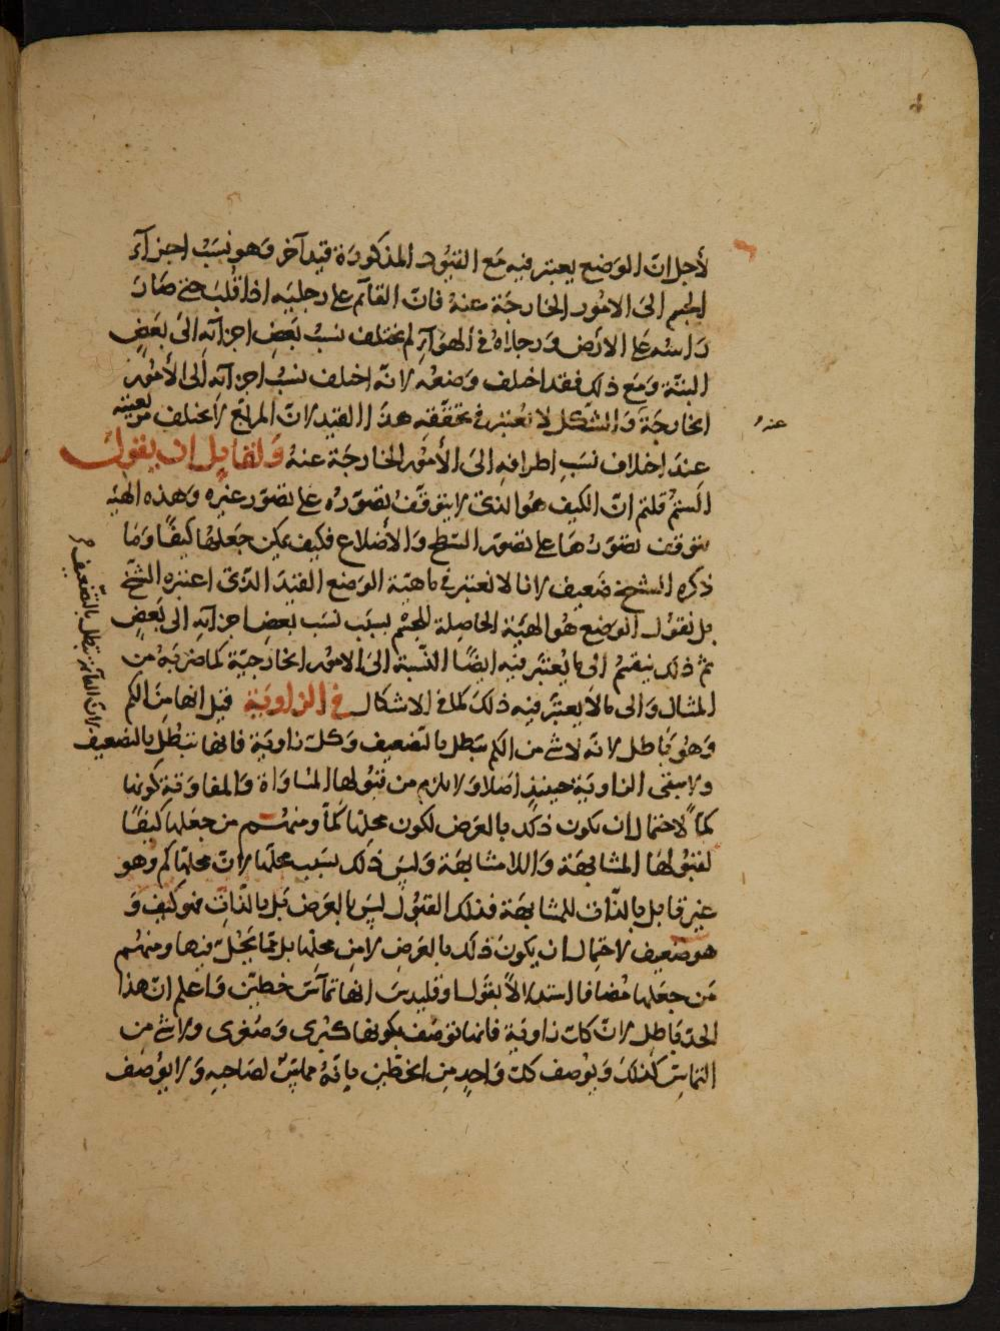 لأجل انّ الوَضع يعتبر فيه مَع القيُود المذكورَة قيد آخر وَهو نسَبُ اجزآء
الجسم الىَ الامُور الخارجَة عنهُ فانّ القآئم على رجليَه اذا قُلبَ حتى صَارَ
رَاسُه على الارض وَرجلاهُ فى الهوَآءِ لم يختلف نسَبُ بعَض اجزآئه الىَ بعَضٍ
البتّة وَمَع ذلك فقد اختلف وَضعُه لانّه اختلف نسَبُ اجزآئه الى الأمُور
الخارجَة وَالشَكل لا نعُتبَر فى تحققّهِ هذَا القيد لانّ المربّع لا يختلف مرّبعيّته
عندَ اختلاف نسَب اطرافهِ الىَ الأمُور الخارجَة عنهُ وَلقايل ان يقولَ
الَستمُ قلتم انّ الكيف هُوَ الذىَ لا يتوقّفُ تصّورُه على تصوّر غيره وَهذه الهيئة
يتوقف تصّورُهَا على تصور السّطح وَالأضلاع فكيف يمكن جَعلهُا كيفًا وَمَا
ذكره الشيخ ضَعيف لانا لا نعتبر فى ماهيّة الوَضع القيدَ الذّىَ اعتبره الشّيخ
بل نقوُل الوَضع هُوَ الهيئَة الحاصِلة للجسُم بسبَب نسَب بعَض اجزآئهِ الى بَعضٍ
ثمّ ذلك ينقسم الى ما يُعتبَر فيه ايضًا النّسبة الىَ الامُور الخارجيّة كما ضربتمُوه من
المثال وَالى ما لا يعتبَر فيه ذلكَ كما فى الاشكال فى الزاوية قيل انها مِنَ الكم
وَهُوَ بَاطل لانّه لا شئ من الكم يبَطل بالتضَعيف وَكلّ زاويَة فانها تبَطُل بالتضعيف
وَلا يبقى الزاويَة حينئذٍ اصَلا وَلا يلزم من قبوُلها المسَاوَاة وَالمفاوَتة كونها
كمّاً لاحتمال ان يكون ذلكَ بالعرَض لكون محلّها كمّاً ومنهُم من جعَلها كيفًا
لقبوُلها المشابهَة وَاللامشابهَة وَليسَ ذلك بسَبب محلّها لانّ محلّها كم وهو
غير قابل بالذّات للمشابهَة فذلك القبُول ليسَ بالعَرض بَل بالذّاتِ فهو كيف وَ
هو ضَعيف لاحتمال ان يكونَ ذلكَ بالعرضِ لا من محلّها بل ممّا يَحُلّ فيها ومنهُم
مَن جعَلها مُضافا استدلالاً بقوَل اوقليدسَ انّها تماسّ خطيّن وَاعلم انّ هذا
الحدّ بَاطل لانّ كلّ زاويَة فانها توصَف بكونها كبُرى وَصُغرى وَلا شئ من
التماسّ كذلكَ وَيوُصف كلّ وَاحدٍ من الخطّين بانّهُ مماسّ لصَاحبهِ وَلا يوُصَف
عنهُ